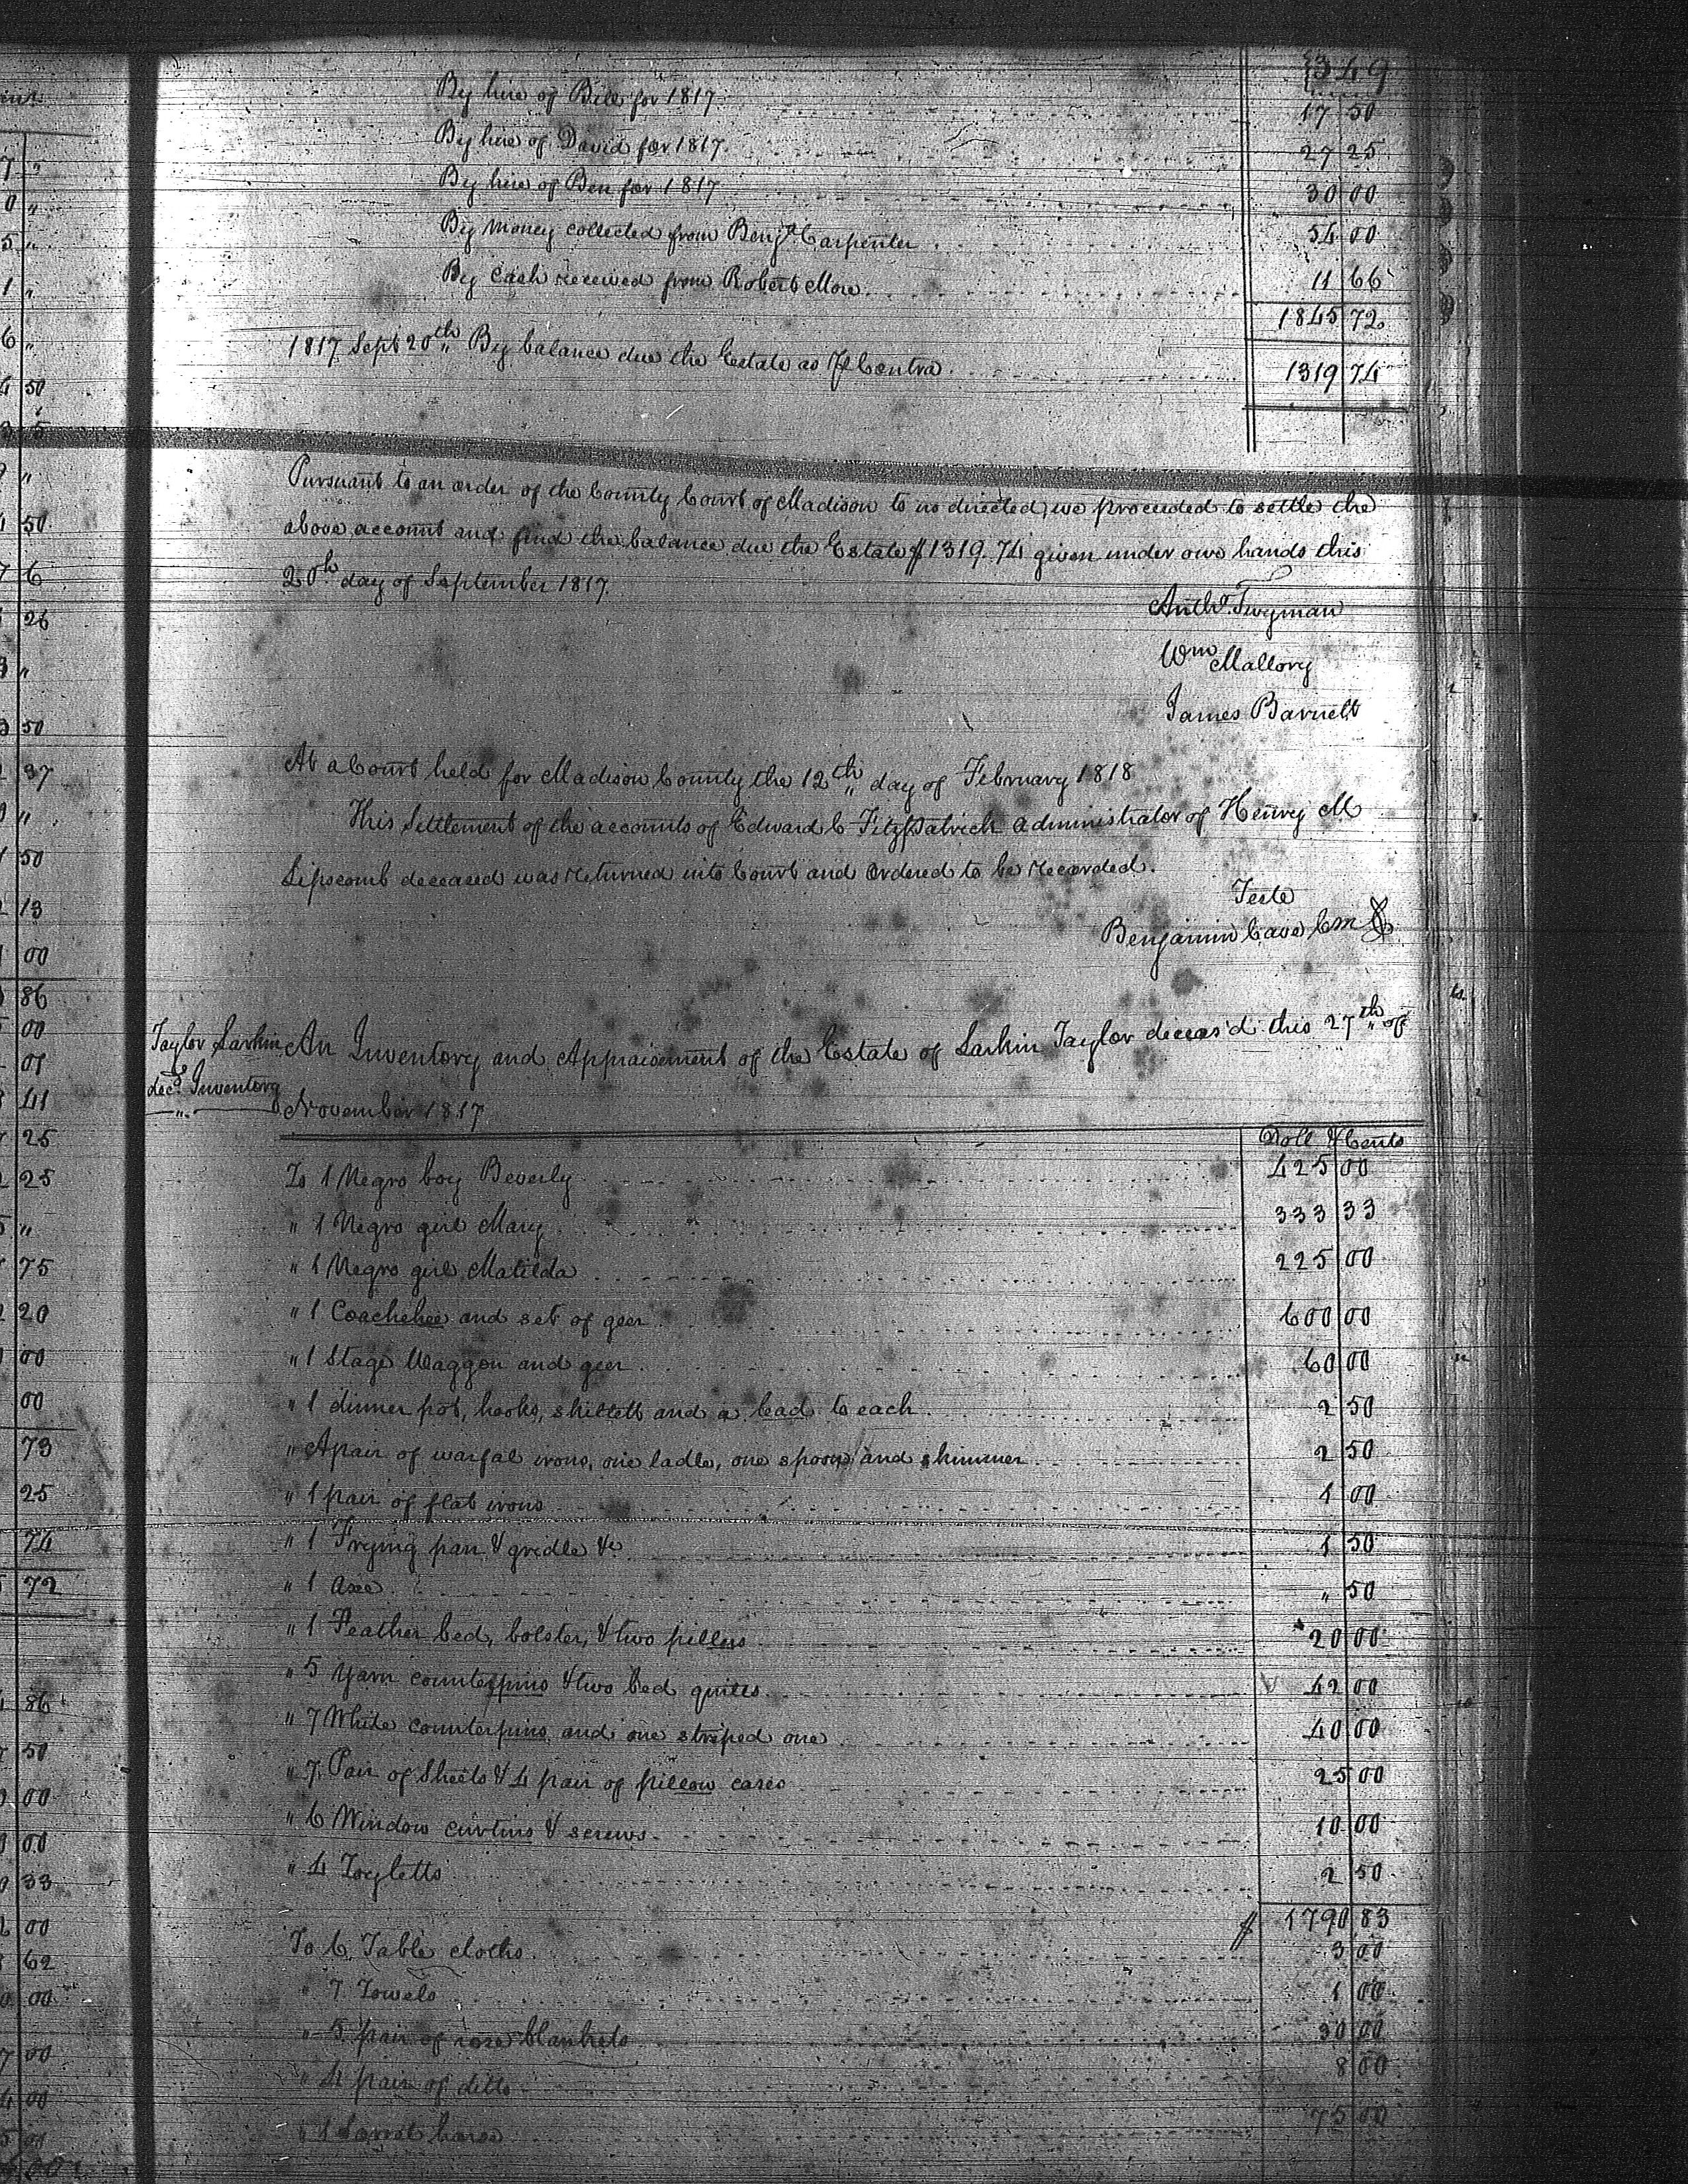 349
By hire of Bill for 1817 17 50
By hire of David for 1817. 27 25
By hire of Ben for 1817 30 00
By Money collected from Benjª Carpenter 54 00
By Cash received from Robert More 11 66
1845 72
1817 Sept 20th By balance due the Estate as Contra 1319 74
Pursuant to an order of the County Court of Madison to us directed, we proceeded to settle the
above account and find the balance due the Estate $1319.74 given under our hands this
20th day of September 1817.
Anthº Twyman
Wm Mallory
James Barnett
At a Court held for Madison County the 12th day of February 1818
This Settlement of the accounts of Edward C Fitzpatrick administrator of Henry M
Lipscomb deceased was returned into Court and Ordered to be Recorded.
Teste
Benjamin Cave
Taylor Larkin
decd Inventory
An Inventory and Appraisement of the Estate of Larkin Taylor deceas'd this 27th of
November 1817
Doll & Cents
To 1 Negro boy Beverly 425 00
" 1 Negro girl Mary 333 33
" 1 Negro girl Matilda 225 00
" 1 Coachehee and set of geer 600 00
" 1 Stage Waggon and geer 60 00
" 1 dinner pot, hooks, skillett and a lead to each 2 50
" A pair of warfal irons, one ladle, one spoon and skimmer 2 50
" 1 pair of flat irons 1 00
" 1 Frying pan & gridle &c 1 50
" 1 Axe " 50
" 1 Feather bed, bolster, & two pillers 20 00
" 5 yarn counterpins & two bed quilts 42 00
" 7 White counterpins and one striped one 40 00
" 7 Pair of Sheets & 4 pair of pillow cases 25 00
" 6 Window curtins & screws 10 00
" 4 Toyletts 2 50
$ 1790 83
To 6 Table cloths 3 00
" 7 Towels 1 00
" 5 pair of rose blankets 30 00
" 4 pair of ditto 8 00
" 1 Sorrel horse 75 00